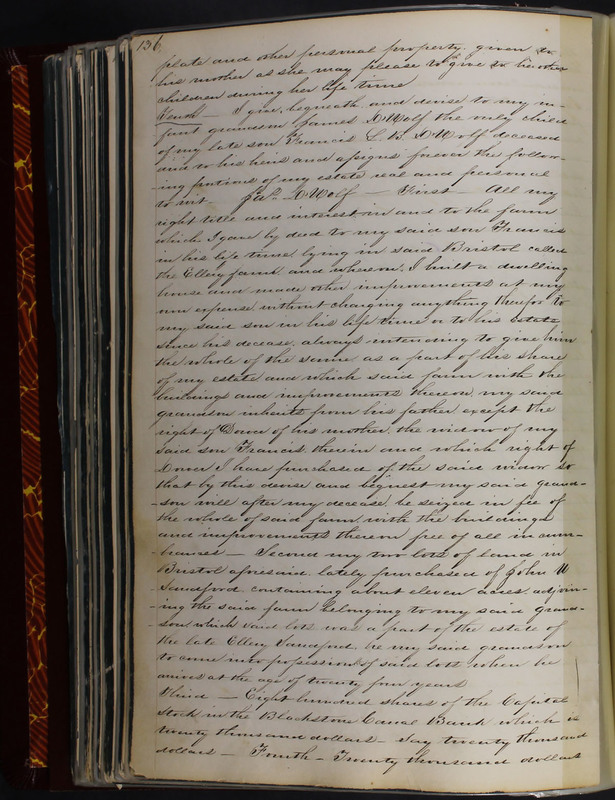 136
plate and other personal property, given to
his mother as she may please to give to her other
children during her life time
Tenth — I give, bequeath and devise to my in-
fant grandson James D'Wolf the only child
of my late son Francis L. B. D'Wolf deceased
and to his heirs and assigns forever the follow-
ing portions of my estate real and personal
to wit Jas. D'Wolf — First — All my
right title and interest in and to the farm
which I gave by deed to my said son Francis
in his life time, lying in said Bristol called
the Ellery farm and whereon, I built a dwelling
house and made other improvements at my
own expense without charging anything therefor to
my said son in his life time or to his estate
since his decease, always intending to give him
the whole of the same as a part of his share
of my estate and which said farm with the
buildings and improvements thereon, my said
grandson inherits from his father except the
right of Dower of his mother, the widow of my
said son Francis therein and which right of
Dower I have purchased of the said widow so
that by this devise and bequest my said grand-
-son will after my decease, be seized in fee of
the whole of said farm with the buildings
and improvements thereon free of all incum-
-brances — Second my two lots of land in
Bristol aforesaid, lately purchased of John W
Sandford containing about eleven acres, adjoin-
-ing the said farm belonging to my said grand-
-son which said lots was a part of the estate of
the late Ellery Sandford, he my said grandson
to come into possession of said lots when he
arrives at the age of twenty four years
Third — Eight hundred shares of the Capital
Stock in the Blackstone Canal Bank which is
twenty thousand dollars — say twenty thousand
dollars — Fourth — Twenty thousand dollars